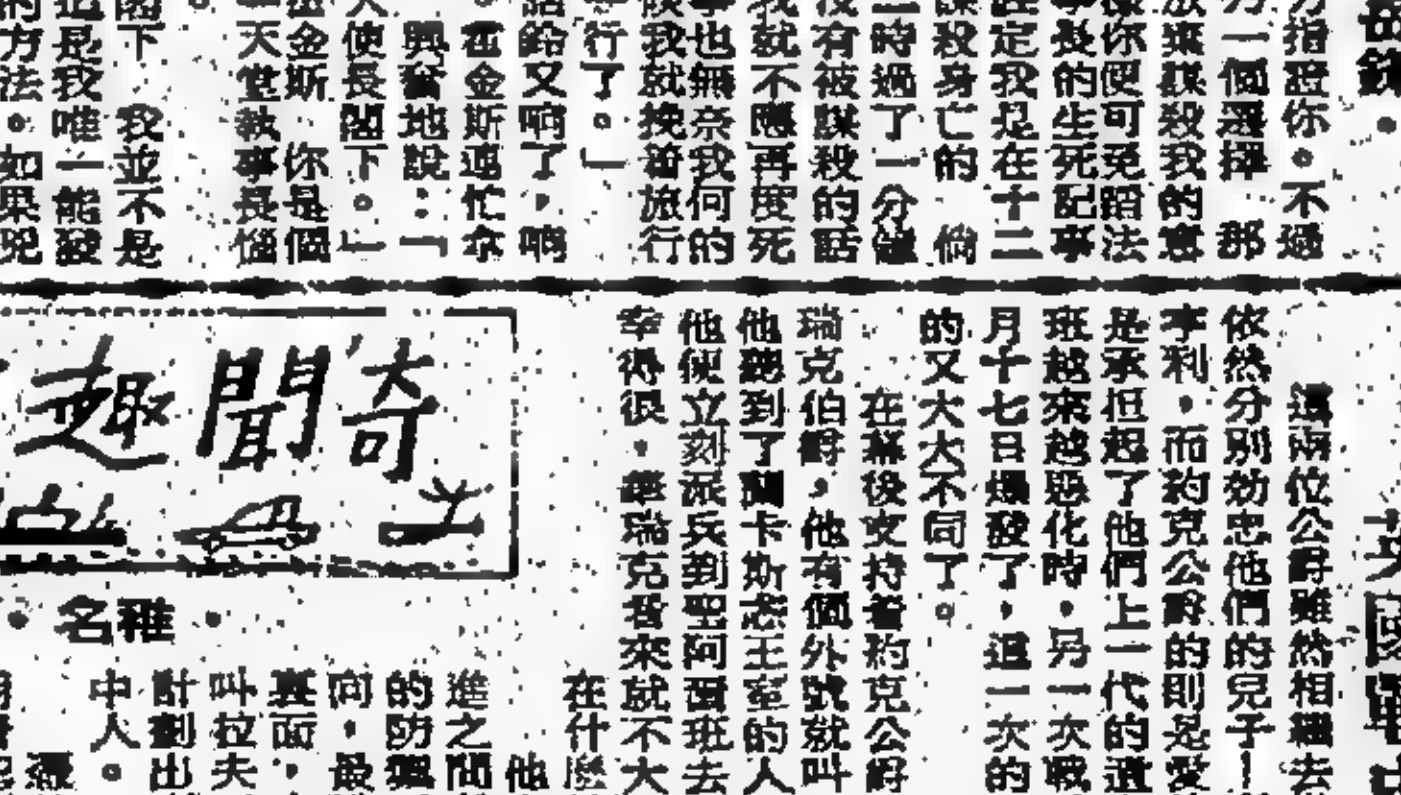 方指證你。不過
一個選擇 那
放棄謀殺我的意
你便可免蹈法
事長的生死記事
註定我是在十二
謀殺身亡的 倘
一時過了一分鐘
沒有被謀殺的話
我就不應再度死
也無奈我何的
我就挽着旅行
行了。」
話鈴又响了，响
霍金斯連忙拿
興奮地說：「
使長閣下。」
金斯 你是個
天堂執事長惱
閣下 我並不是
這是我唯一能發
的方法。如果兇
英國
這兩位公爵雖然相繼去
依然分別効忠他們的兒子—
亨利，而約克公爵的則是愛
是承担起了他們上一代的遺
班越來越惡化時，另一次戰
月十七日爆發了，這一次的
的又大大不同了。
在幕後支持着約克公爵
瑞克伯爵，他有個外號就叫
他聽到了蘭卡斯忒王室的人
他便立刻派兵到聖阿爾班去
幸得很，華瑞克君來就不大
在什麼
奇聞趣
稚名
他
進之間
的防
向，最
裏面，
叫拉夫
計劃出
中人。